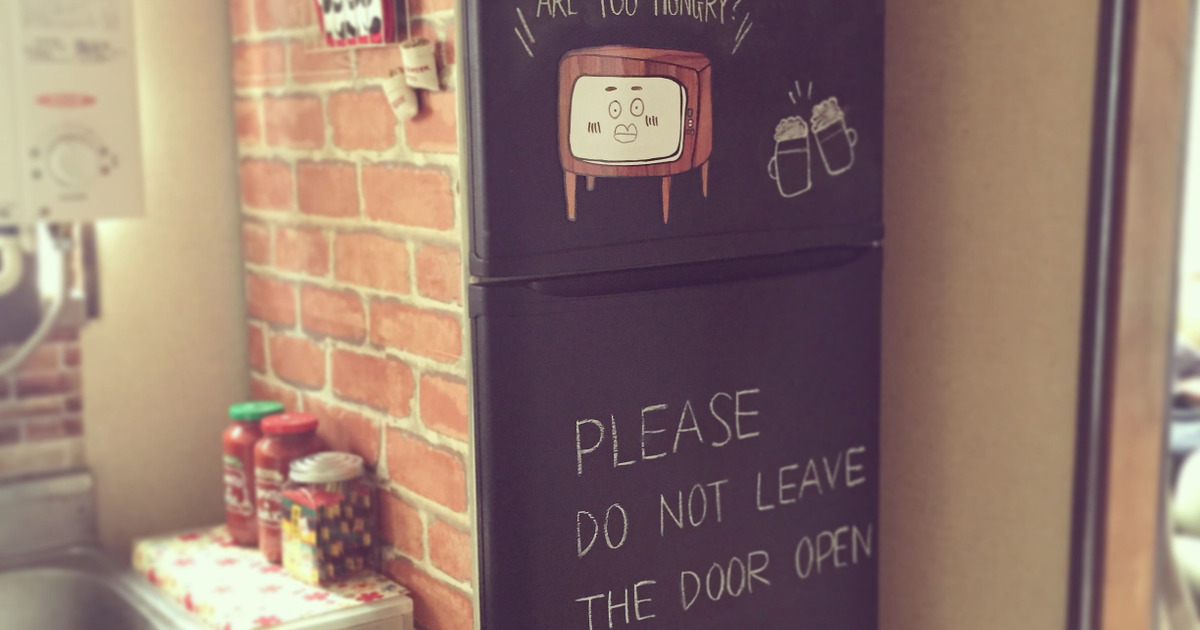 ARE YOU HUNGRY?
PLEASE
DO NOT LEAVE
THE DOOR OPEN